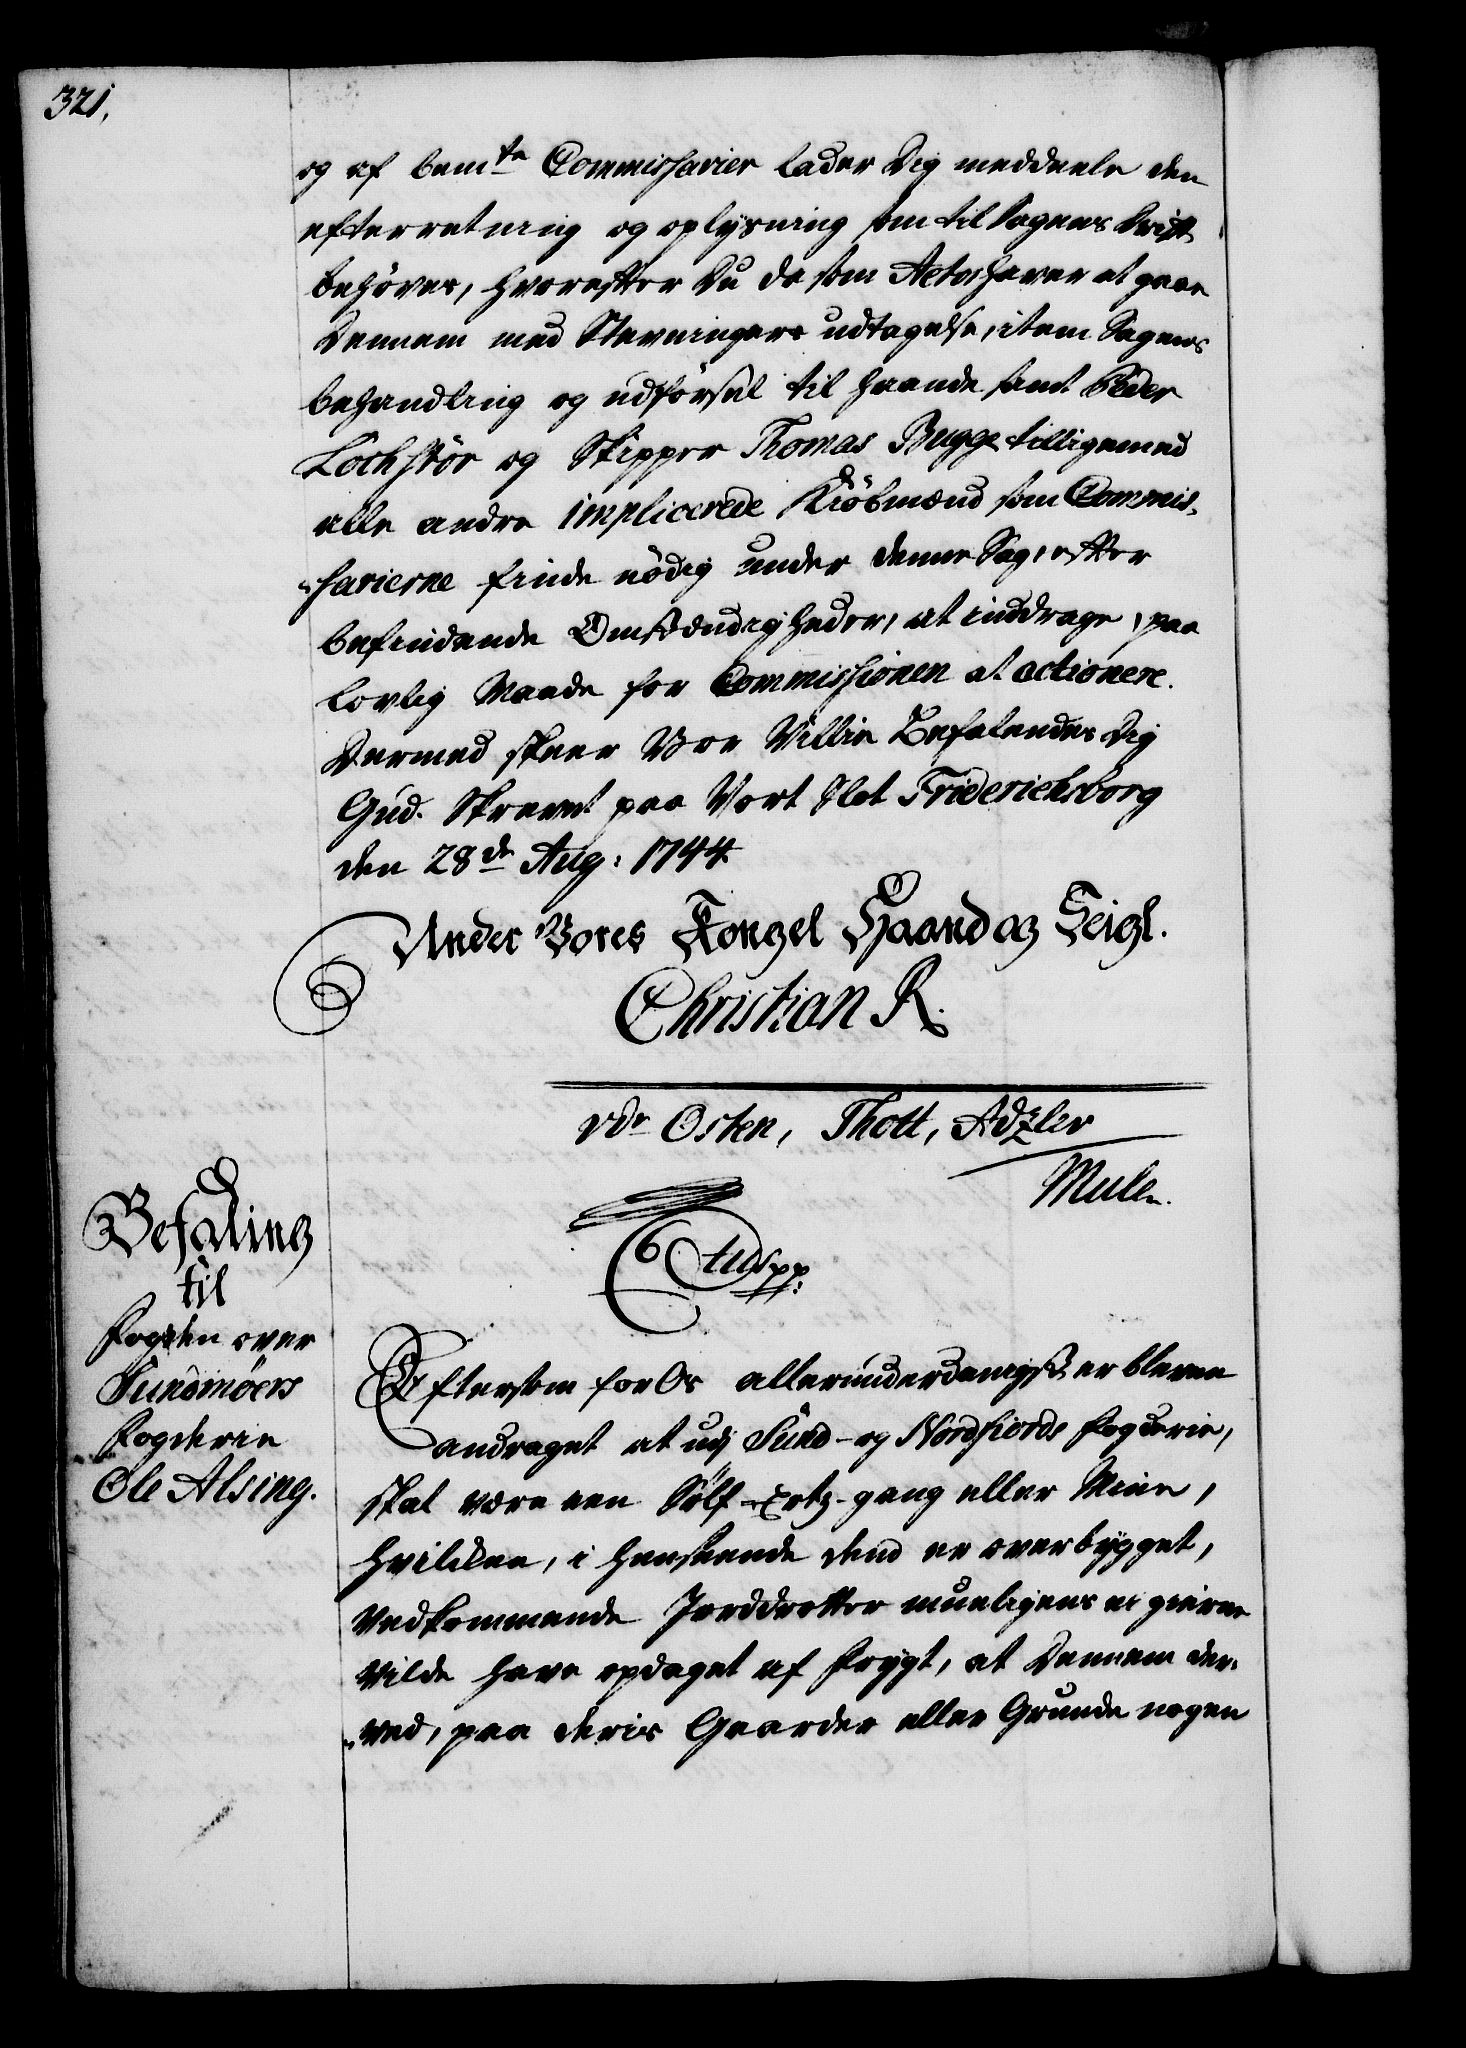 321.
og af bem:te Commissarier lader Dig meddeele den
efterretning og oplysning som til Sagens Drift
behöves, hvorefter Du da som Actor haver at gaae
Dennem med Stevningers udtagelse, item Sagens
behandling og udförsel til haande samt Peder
Lochstör og Skipper Thomas Bugge tilligemed
alle andre implicerede Kiöbmænd som Commis-
sarierne finde nödig under denne Sag, efter
befindende Omstændigheder, at inddrage, paa
lovlig Maade for Commissionen at actionere.
Dermed skeer Vor Villie Befalendes Dig
Gud. Skrevet paa Vort Slot Friderichsborg
den 28de Aug: 1744.
Under Vores Kongel Haand og Seigl.
Christian R.
vdr Osten, Thott, Adzler
Mule.
Befaling
til
Fogden over
Sundmöers
Fogderie
Ole Alsing.
C 6tus pp:
Eftersom for Os allerunderdanigst er bleven
andraget at udj Sund- og Nordfiords Fogderie,
skal være een Sölf-Ertz-gang eller Mine,
hvilken, i henseende dend er overbygget,
Vedkommende Jorddrotter mueligens ei gierne
vilde have opdaget af Frygt, at Dennem der-
ved, paa deris Gaarder eller Grunde nogen